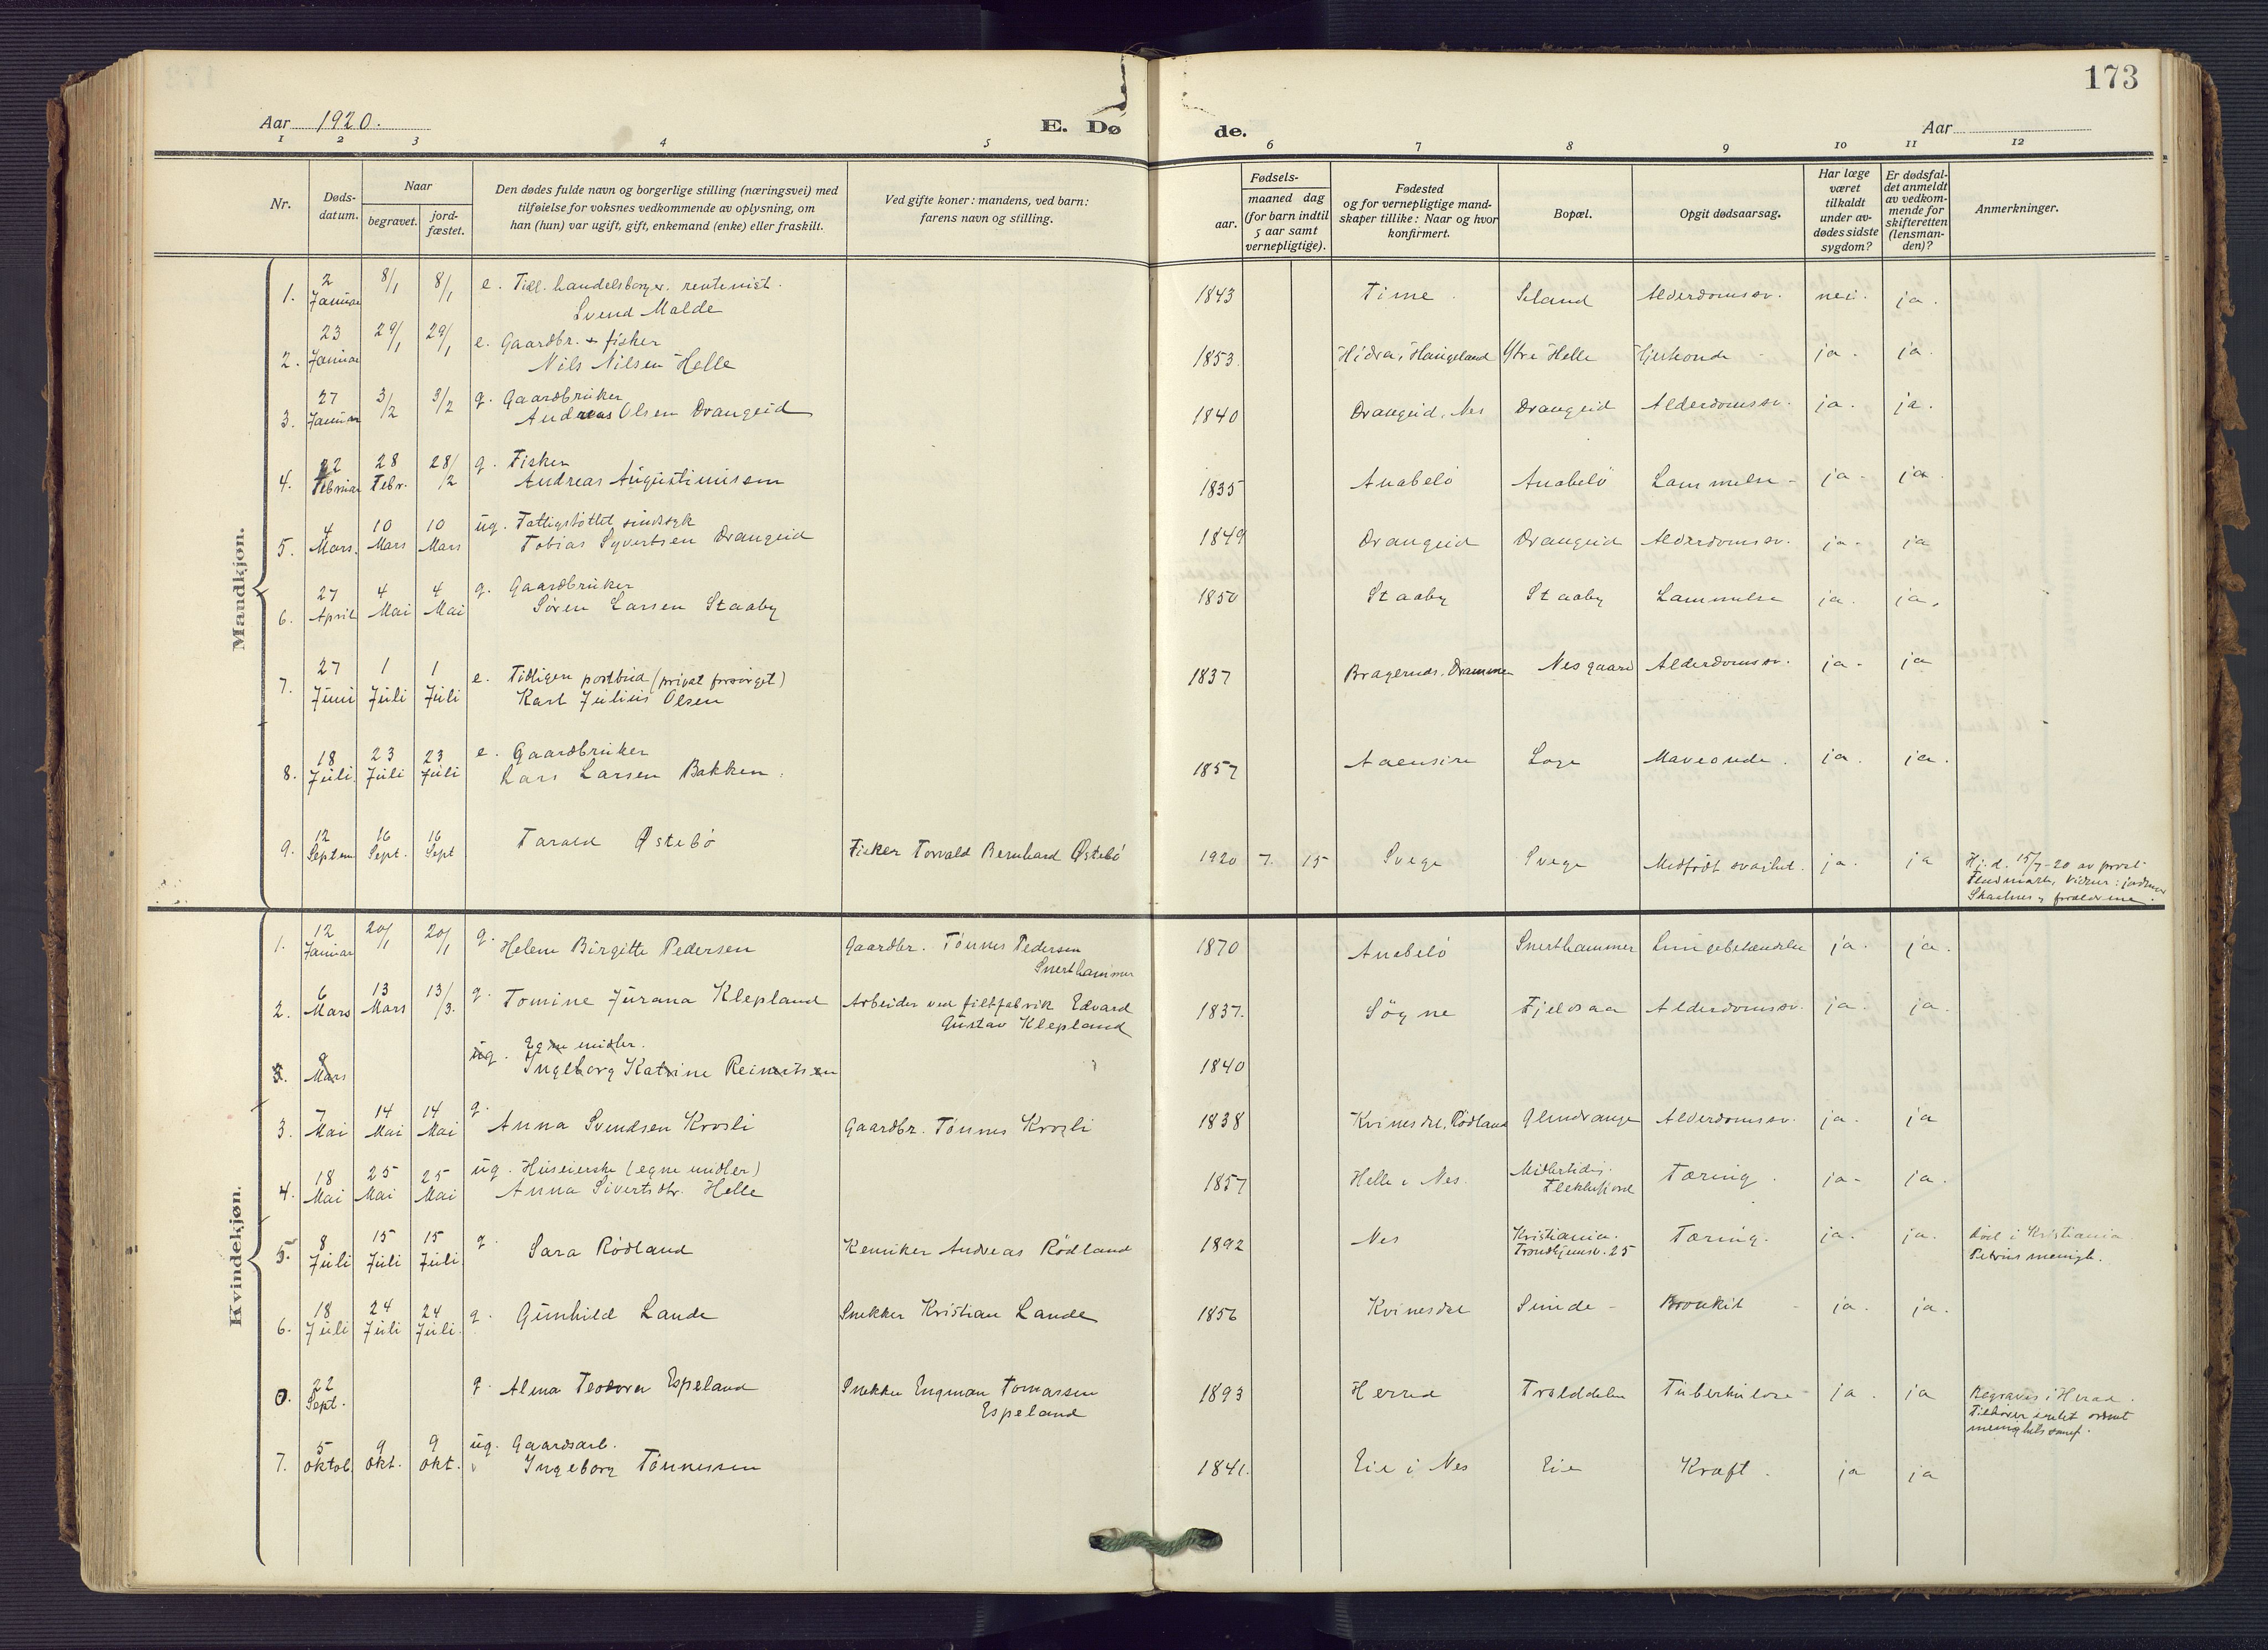 173
Aar 1920.
E. Dø
de.
Aar
1 2 3 4 5 6 7 8 9 10 11 12
Nr.
Døds-
datum.
Naar
begravet.
jord-
fæstet.
Den dødes fulde navn og borgerlige stilling (næringsvei) med
tilføielse for voksnes vedkommende av oplysning, om
han (hun) var ugift, gift, enkemand (enke) eller fraskilt.
Ved gifte koner: mandens, ved barn:
farens navn og stilling.
Fødsels-
aar.
maaned dag
(for barn indtil
5 aar samt
vernepligtige).
Fødested
og for vernepligtige mand-
skaper tillike: Naar og hvor
konfirmert.
Bopæl.
Opgit dødsaarsag.
Har læge
været
tilkaldt
under av-
dødes sidste
sygdom?
Er dødsfal-
det anmeldt
av vedkom-
mende for
skifteretten
(lensman-
den)?
Anmerkninger.
Maandkjøn.
1. 2 Januar 8/1 8/1 e. Tidl. handelsborger. rentenist.
Svend Malde 1843 Time. Seland Alderdomssv. nei. ja.
2. 23 Januar 29/1 29/1 e. Gaardbr. + fisker
Nils Nilsen Helle 1853. Hidra, Haugeland Ytre Helle Hjerteonde ja. ja.
3. 27 Januar 3/2 3/2 g. Gaardbruker
Andreas Olsen Drangeid 1840 Drangeid, Nes Drangeid Alderdomssv. ja. ja.
4. 22 Februar 28 Febr. 28/2 g. Fisker
Andreas Augustinisen 1835 Anabelö Anabelö Lammelse ja. ja.
5. 4 Mars. 10 Mars 10 Mars ug. Fattigstöttet sindssyk
Tobias Syvertsen Drangeid 1849 Drangeid Drangeid Alderdomssv. ja. ja
6. 27 April 4 Mai 4 Mai g. Gaardbruker
Sören Larsen Staaby 1850 Staaby Staaby Lammelse ja. ja.
7. 27 Juni 1 Juli 1 Juli e. Tidligere postbud (privat forsörget)
Karl Julius Olsen 1837 Bragernes, Drammen Nesgaard Alderdomssv. ja. ja
8. 18 Juli. 23 Juli 23 Juli e. Gaardbruker
Lars Larsen Bakken. 1857 Aaensire Loge Maveonde. ja. ja.
9. 12 Septem 16 Sept. 16 Sept Tarald Østebö Fisker Torvald Bernhard Østebö 1920 7. 15 Svege Svege Medfödt svaghet. ja. ja Hj. d. 15/7-20 av prost
Flodmark, Vidner: jordmor
Skaalnes og forældrene.
Kvindekjøn.
1. 12 Januar 20/1 20/1 g. Helene Birgitte Pedersen Gaardbr. Tönnes Pedersen
Snerthammer 1870 Anabelö Snerthammer Lungebetændelse ja. ja.
2. 6 Mars 13 Mars 13/3. g. Tomine Jurana Klepland Arbeider ved filtfabrik Edvard
Gustav Klepland 1837. Sögne Fjeldsaa Alderdomssv. ja. ja.
3. 9 Mars ug. Egne midler.
Ingeborg Katrine Reinertsen 1840
3. 7 Mai 14 Mai 14 Mai g. Anna Svendsen Krosli Gaardbr. Tönnes Krosli 1838 Kvinesdal, Rödland Glendrange Alderdomssv. ja. ja
4. 18 Mai 25 Mai 25 Mai ug. Huseierske (egne midler)
Anna Sivertsdtr. Helle 1857 Helle i Nes. Midlertidig.
Flekkefjord Tæring. ja. ja.
5. 8 Juli 15 Juli 15 Juli. g. Sara Rödland Kemiker Andreas Rödland 1892 Nes Kristiania.
Trondhjemsv. 25 Tæring. ja. ja. död i Kristiania.
Petrus menigh.
6. 18 Juli 24 Juli 24 Juli. g. Gunhild Lande Snekker Kristian Lande 1856 Kvinesdal Sunde Bronkit ja. ja.
0. 22 Sept. g. Alma Teodora Espeland Snekker Ingman Tomassen
Espeland 1893 Herred Trolddalen Tuberkulose ja. ja Begraves i Herad.
Tilhörer intet ordnet
menighetssamf.
7. 5 Oktob. 9 Okt. 9 Okt. ug. Gaardsarb.
Ingeborg Tönnessen 1841. Eie i Nes Eie Kræft. ja ja